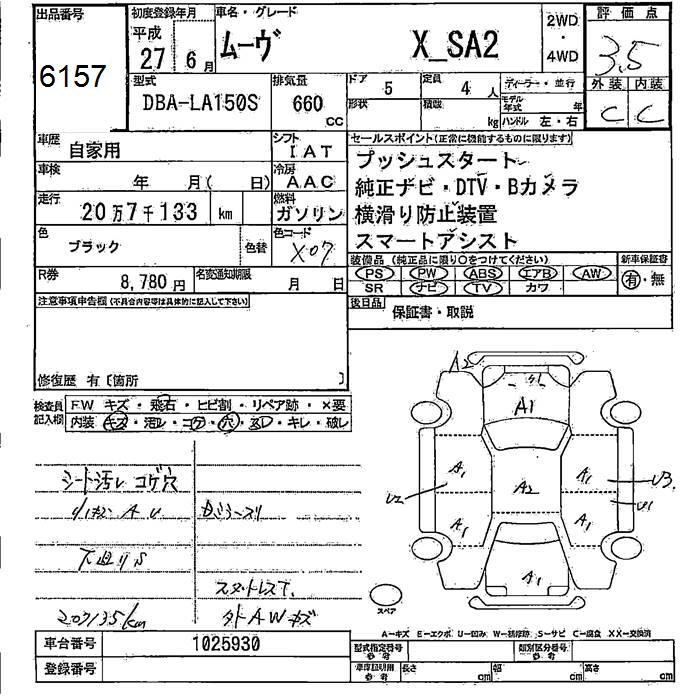 出品番号 初度登録年月 車名・グレード 2WD・4WD 評価点
6157 平成27年6月 ムーヴ X_SA2 3.5
型式 排気量 ドア 5 定員 4人 ディーラー・並行 外装 内装
DBA-LA150S 660CC 形状 積載 kg モデル年式 年 C C
ハンドル 左・右
車歴 自家用 シフト IAT
車検 年 月( 日) 冷房 AAC
走行 20万7千133 km 燃料 ガソリン
色 ブラック 色替 色コード X07
R券 8,780円 名変通知期限 月 日
セールスポイント(正常に機能するものに限ります)
プッシュスタート
純正ナビ・DTV・Bカメラ
横滑り防止装置
スマートアシスト
装備品(純正品に限り○をつけてください) 新車保証書
PS PW ABS エアB AW 有・無
SR ナビ TV カワ
後日品 保証書・取説
注意事項申告欄(不具合内容等は具体的に記入して下さい)
修復歴 有〔箇所 〕
検査員記入欄 FW キズ・飛石・ヒビ割・リペア跡・×要
内装 キズ・汚レ・コゲ・穴・スレ・キレ・破レ
シート汚レ コゲ穴
下廻りS
スタットレスT.
207135km 外AWキズ
A2
A1
A1 A2 A1
U2 U3
U1
A1 A1
A1
スペア
A-キズ E-エクボ U-凹み W-補修跡 S-サビ C-腐食 XX-交換済
車台番号 1025930
登録番号
型式指定番号 参考 類別区分番号 参考
車庫証明用 参考 長さ cm 幅 cm 高さ cm